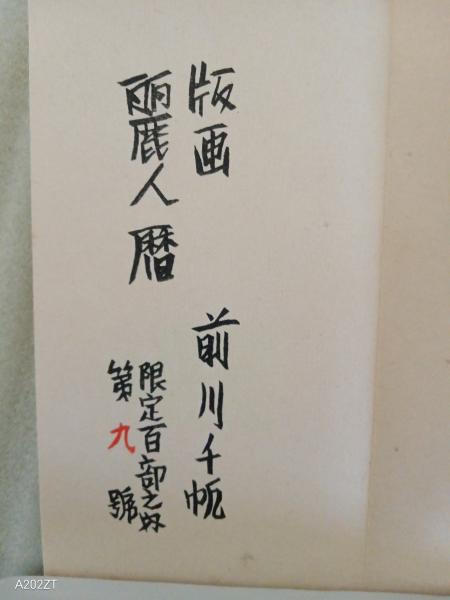 版画
前川千帆
麗人暦
限定百部之内
第九號
A202ZT